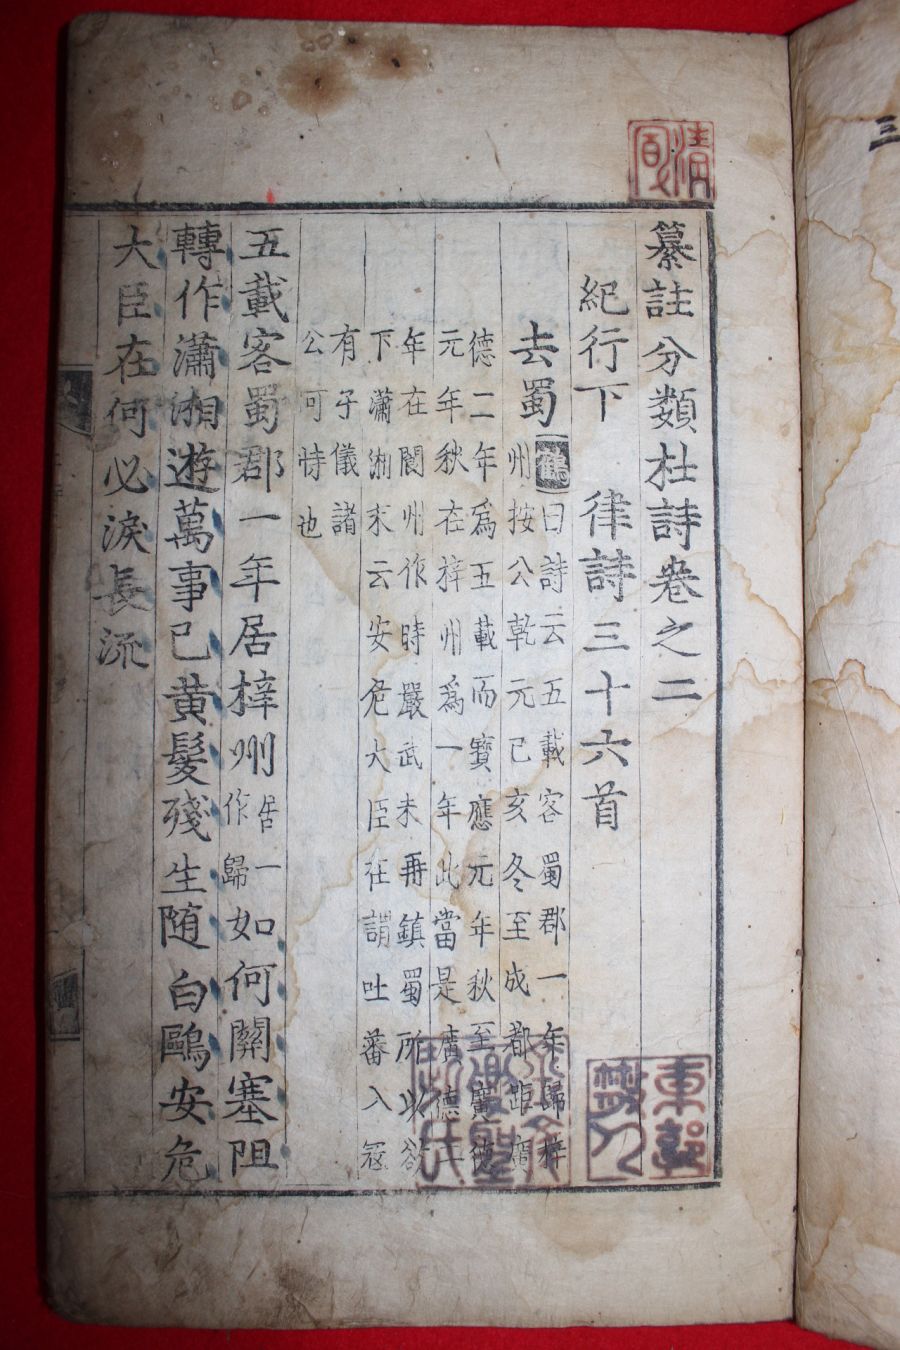 纂註分類杜詩卷之二
紀行下 律詩三十六首
去蜀 鶴曰詩云五載客蜀郡一年歸梓
州按公乾元己亥冬至成都距廣
德二年爲五載而寶應元年秋至廣德
元年秋在梓州爲一年此當是廣德二
年在閬州作時嚴武未再鎮蜀所以欲
下瀟湘末云安危大臣在謂吐蕃入寇
有子儀諸
公可恃也
五載客蜀郡一年居梓州居一作歸如何關塞阻
轉作瀟湘遊萬事已黃髮殘生随白鷗安危
大臣在何必淚長流
三